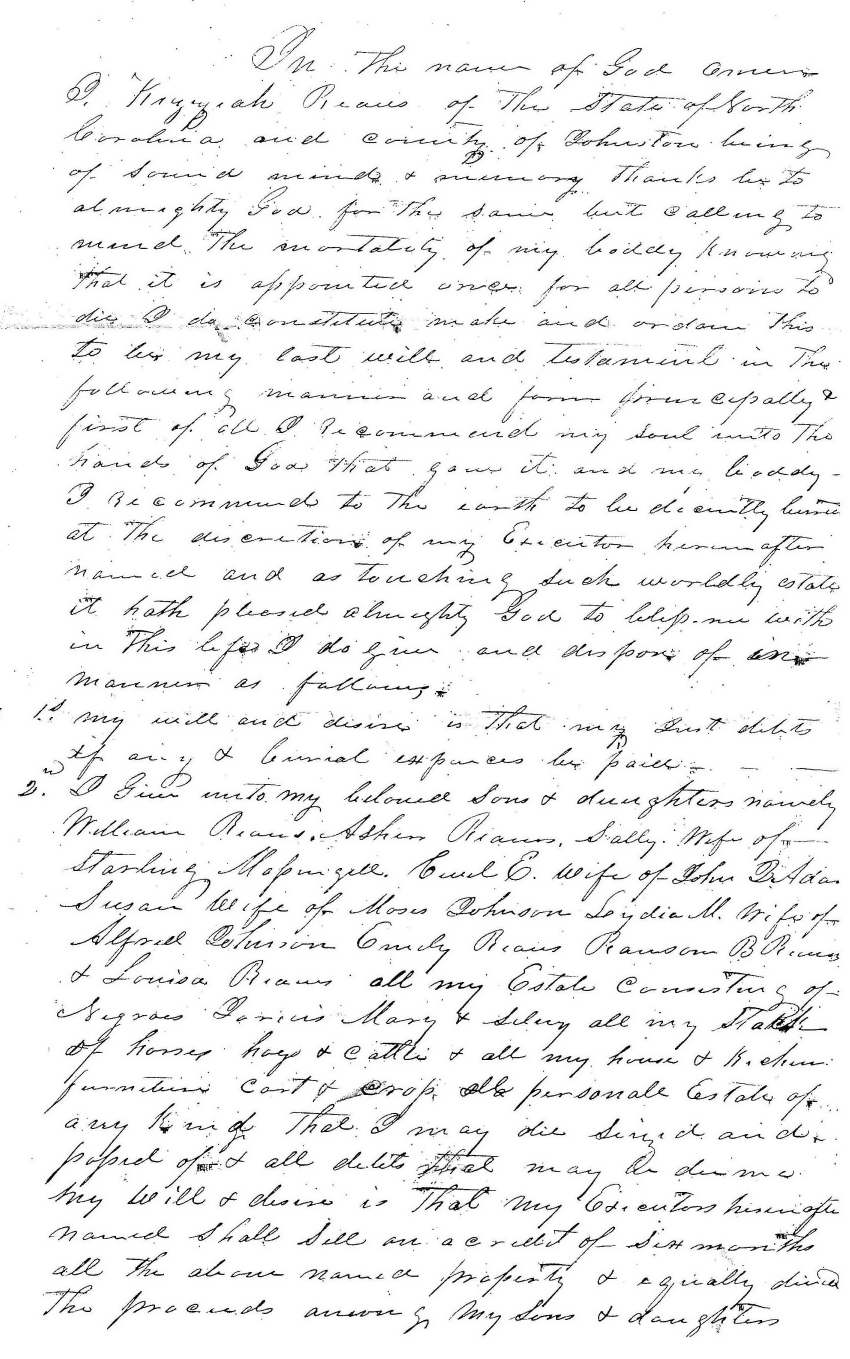 In the name of God amen
I. Kizziah Reaves of the State of North
Carolina and county of Johnston being
of sound mind & memory thanks be to
almighty God for the same but calling to
mind the mortality of my boddy knowing
that it is appointed once for all persons to
die I do constitute make and ordain this
to be my last will and testament in the
following manner and form principally &
first of all I Recommend my soul unto the
hands of God that gave it and my boddy
I Recommend to the earth to be decently
at the discretion of my Executor herein after
named and as touching such worldly estate
it hath pleased almighty God to bless me with
in this life I do give and dispose of in
manner as follows
1st my will and desire is that my Just debts
if any & burial expences be paid
2nd I Give unto my beloved sons & daughters namely
William Reaves, Asher Reaves, Sally Wife of
Starling Massingill. E. Wife of John Q Ada
Susan Wife of Moses Johnson Lydia M. Wife of
Alfred Johnson Emily Reaves Ransom B Reaves
& Louisa Reaves all my Estate Consisting of
Negroes Mary & all my Stock
of horses hogs & cattle & all my house & Kichen
furniture cart & crop all personale Estate of
any Kind that I may die sezed and
possed of & all debts that may be due me
My Will & desire is that my Executors herein after
named shall sell on a credit of six months
all the above named property & equally divide
the proceeds among my sons & daughters